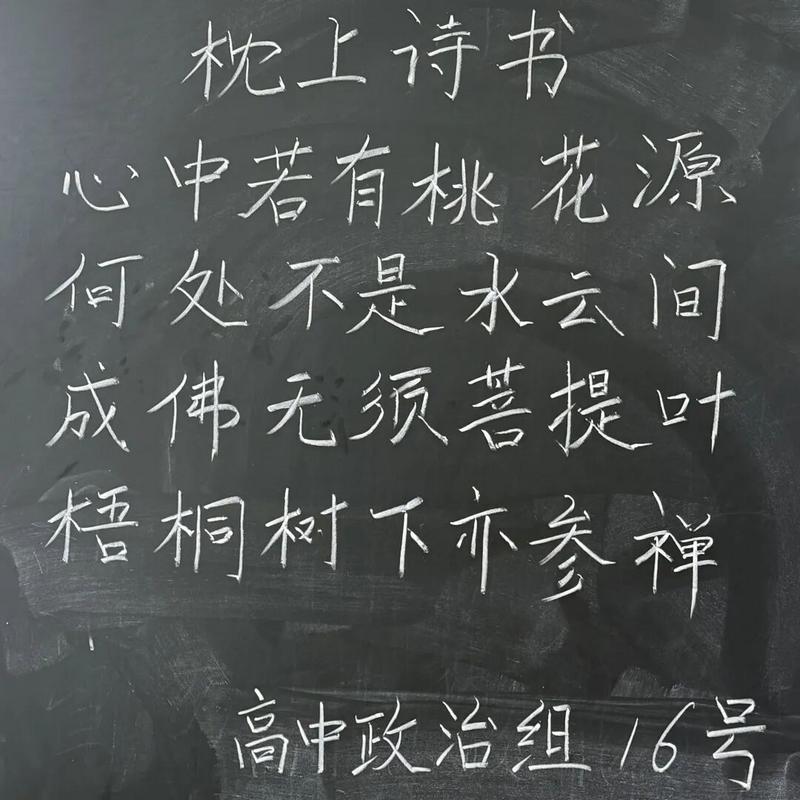 枕上诗书
心中若有桃花源
何处不是水云间
成佛无须菩提叶
梧桐树下亦参禅
高中政治组 16号